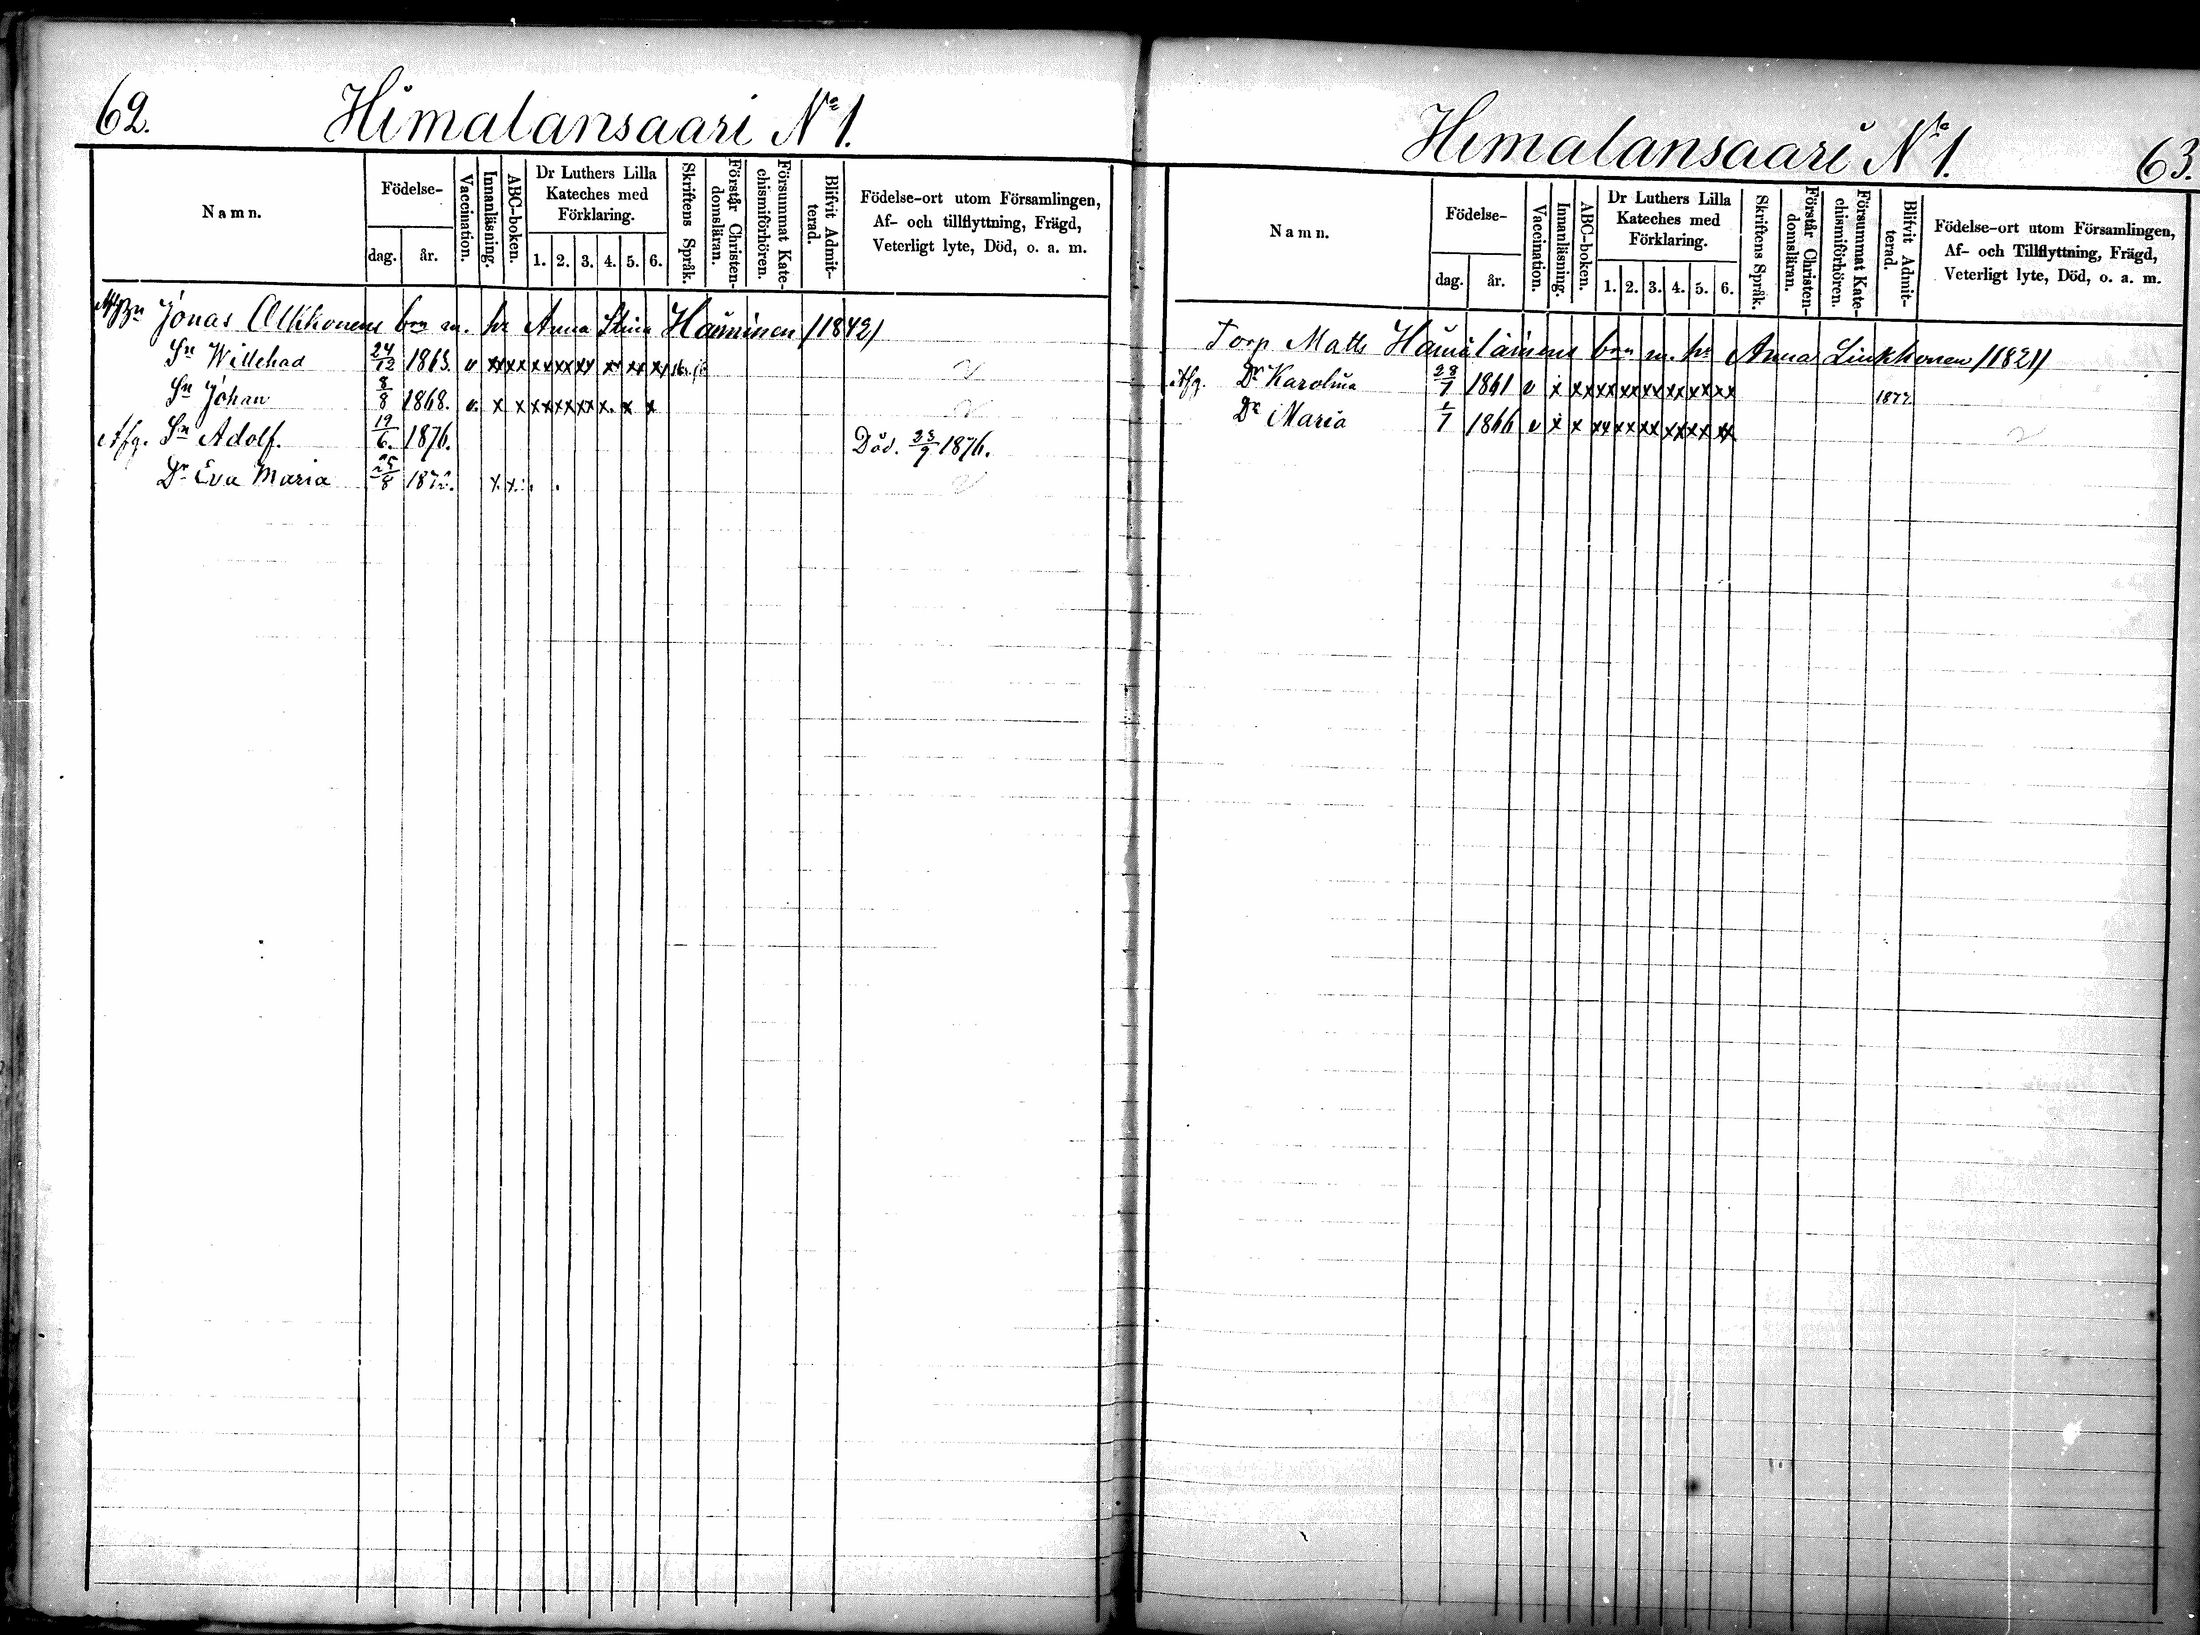 62.
Himalansaari No 1.
Namn.
Födelse-
dag.
år.
Vaccination.
Innanläsning.
ABC-boken.
Dr Luthers Lilla
Kateches med
Förklaring.
1. 2. 3. 4. 5. 6.
Skriftens Språk.
Förstår Christen-
domsläran.
Försummat Kate-
chismiförhören.
Blifvit Admit-
terad.
Födelse-ort utom Församlingen,
Af- och tillflyttning, Frägd,
Veterligt lyte, Död, o. a. m.
Jonas Olkkonens brn m. hr Anna Stina Häuninen /1842/
Sn Willehad 24/12 1863. v xx xx xx xx xx x xx xx
Sn Johan 8/8 1868. v. x x xx xx xx x. x x
Afg. Sn Adolf. 19/6. 1876. Död. 23/9 1876.
Dr Eva Maria 25/8 x. x.
Himalansaari No 1.
63.
Namn.
Födelse-
dag.
år.
Vaccination.
Innanläsning.
ABC-boken.
Dr Luthers Lilla
Kateches med
Förklaring.
1. 2. 3. 4. 5. 6.
Skriftens Språk.
Förstår Christen-
domsläran.
Försummat Kate-
chismiförhören.
Blifvit Admit-
terad.
Födelse-ort utom Församlingen,
Af- och Tillflyttning, Frägd,
Veterligt lyte, Död, o. a. m.
Torp Matts Hämäläinens brn m. hr Anna Linkkonen /1821/
Afg. Dr Karolina 28/7 1861 v x xx xx xx xx xx xx xx 1877
Dr Maria 1866 v x x xx xx xx xx xx xx